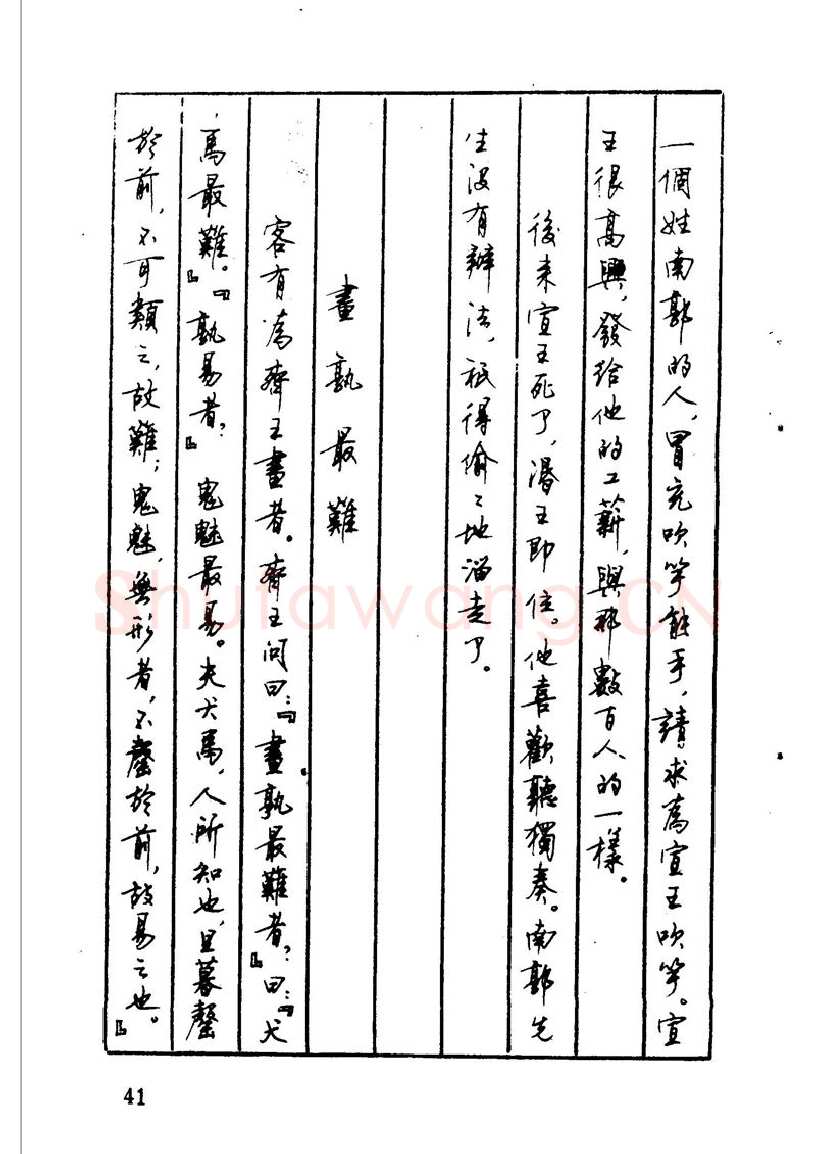 一個姓南郭的人，冒充吹竽能手，請求為宣王吹竽。宣
王很高興，發給他的工薪，與那數百人的一樣。
後来宣王死了，湣王即位。他喜歡聽獨奏。南郭先
生没有辦法，祇得偷〻地溜走了。
畫孰最難
客有為齊王畫者。齊王問曰：『畫孰最難者？』曰：『犬
馬最難。』『孰易者？』鬼魅最易。夫犬馬，人所知也，旦暮罄
於前，不可類之，故難；鬼魅，無形者，不罄於前，故易之也。』
41
Shufawang.CN